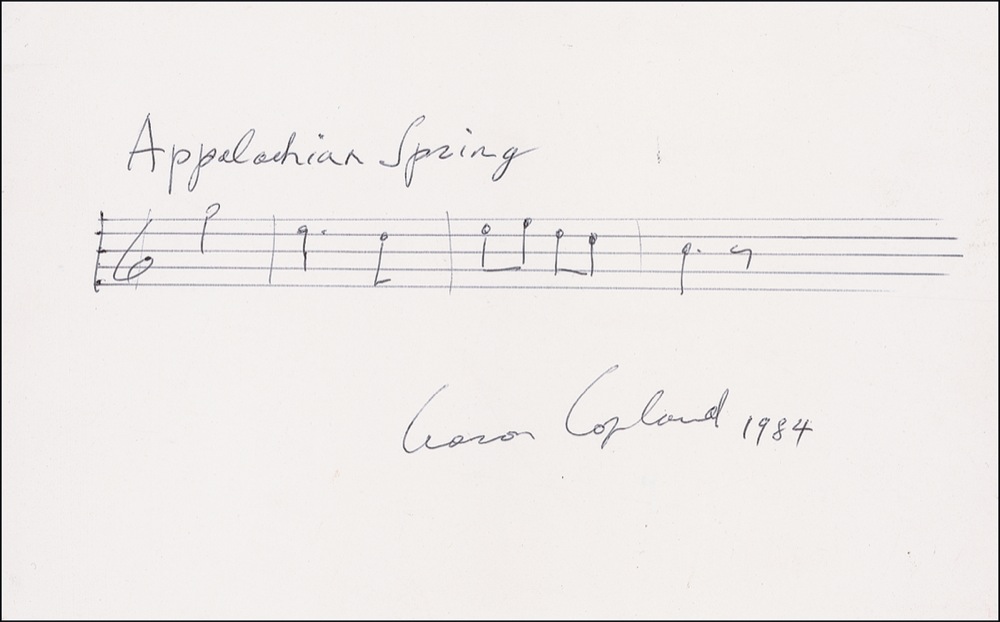 Appalachian Spring
Aaron Copland 1984